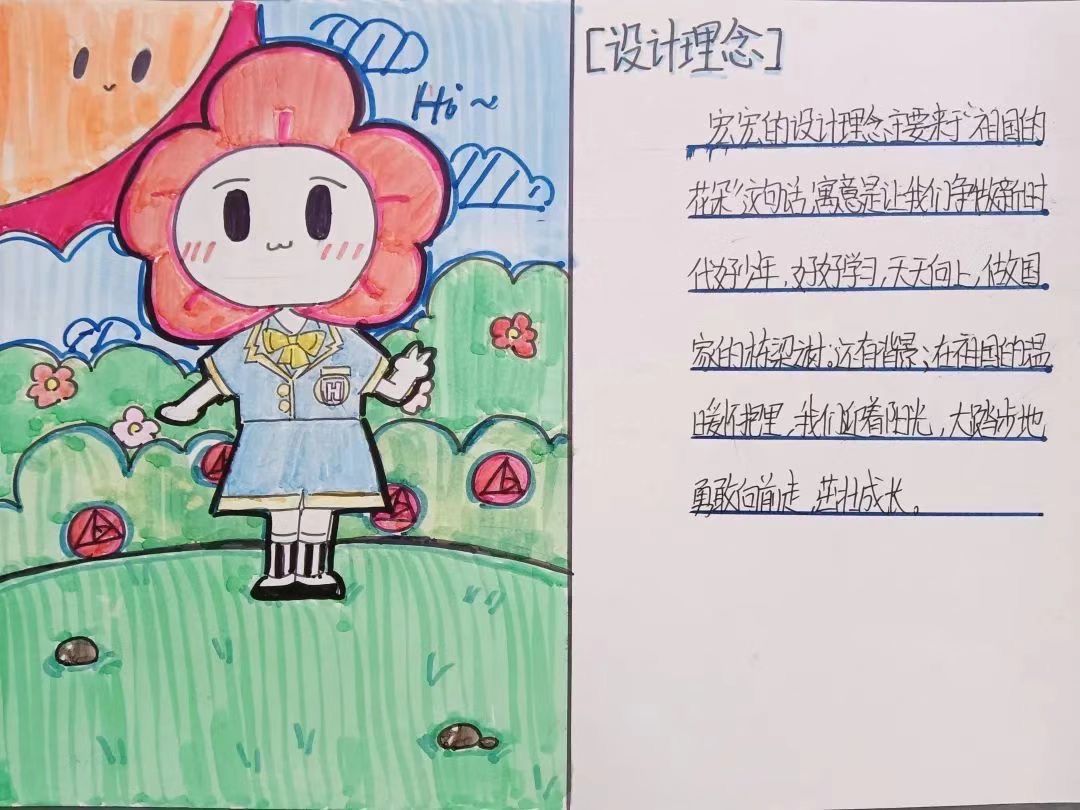 Hi~
H
[设计理念]
宏宏的设计理念主要来于“祖国的
花朵”这句话,寓意是让我们争做新时
代好少年,好好学习,天天向上,做国
家的栋梁材。还有背景,在祖国的温
暖怀抱里,我们迎着阳光,大踏步地
勇敢向前走,茁壮成长。